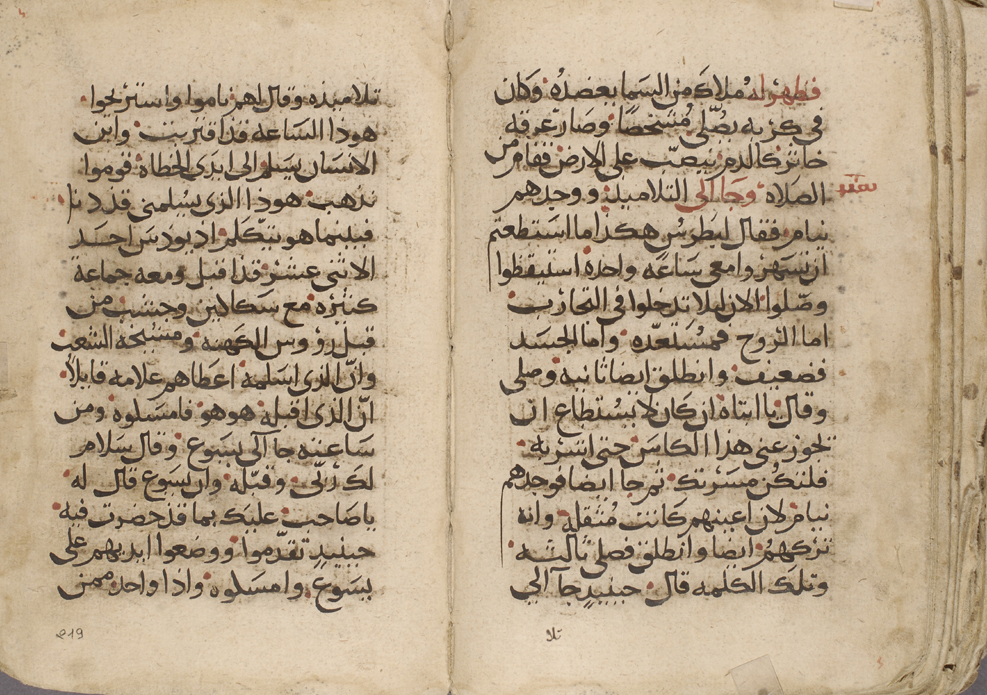 فظهر له ملاك من السما يعضده وكان
في كربه يصلي مشخصا وصار عرقه
خاثر كالدم ينصب على الارض فقام من
الصلاه وجا الى التلاميذ ووجدهم
نيام فقال لبطرس هكذا ما استطعتم
ان تسهروا معي ساعه واحده استيقظوا
وصلوا الان ليلا تدخلوا في التجارب
اما الروح فمستعده واما الجسد
فضعيف وانطلق ايضا ثانيه وصلى
وقال يا ابتاه ان كان لا يستطاع ان
تجوز عني هذا الكاس حتى اشربه
فلتكن مسرتك ثم جا ايضا فوجدهم
نيام لان اعينهم كانت مثقله وانه
تركهم ايضا وانطلق فصلى ثالثه
وتلك الكلمه قال حينيذ جا الى
تلا
تلاميذه وقال لهم ناموا واستريحوا
هوذا الساعه قد اقتربت وابن
الانسان يسلم الى ايدي الخطاه قوموا
نذهب هوذا الذي يسلمني قد دنا
فبينما هو يتكلم اذ يودس احد
الاثني عشر قد اقبل ومعه جماعة
كثيره مع سكاكين وخشب من
قبل رؤوس الكهنه ومشيخة الشعب
وان الذي اسلمه اعطاهم علامه قايلا
ان الذي اقبله هو هو فامسلوه ومن
ساعته جا الى يسوع وقال سلام
لك ربي وقبله وان يسوع قال له
يا صاحب عليك بما قد حضرت فيه
حينيذ تقدموا ووضعوا ايديهم على
يسوع وامسلوه واذا واحد ممن
219